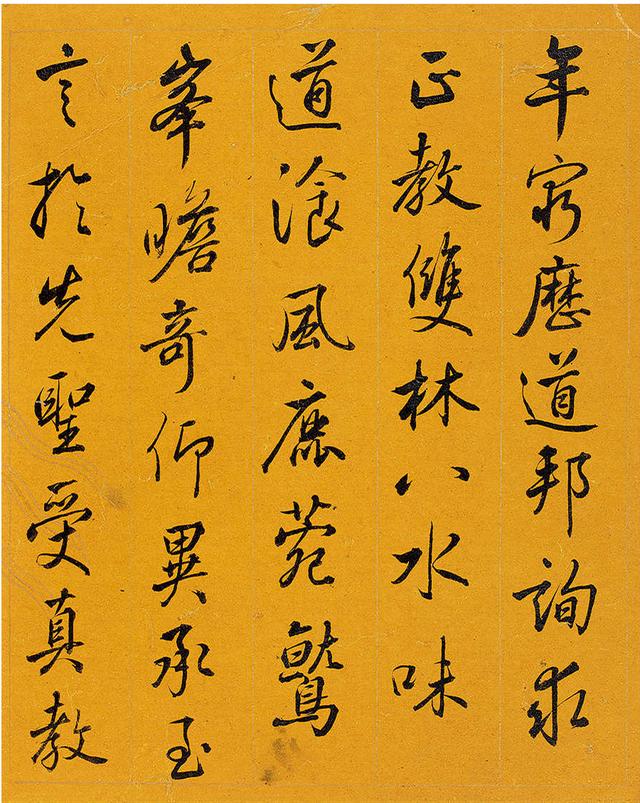 年窮歷道邦詢求
正教雙林八水味
道湌風鹿菀鷲
峯瞻奇仰異承至
言於先聖受真教